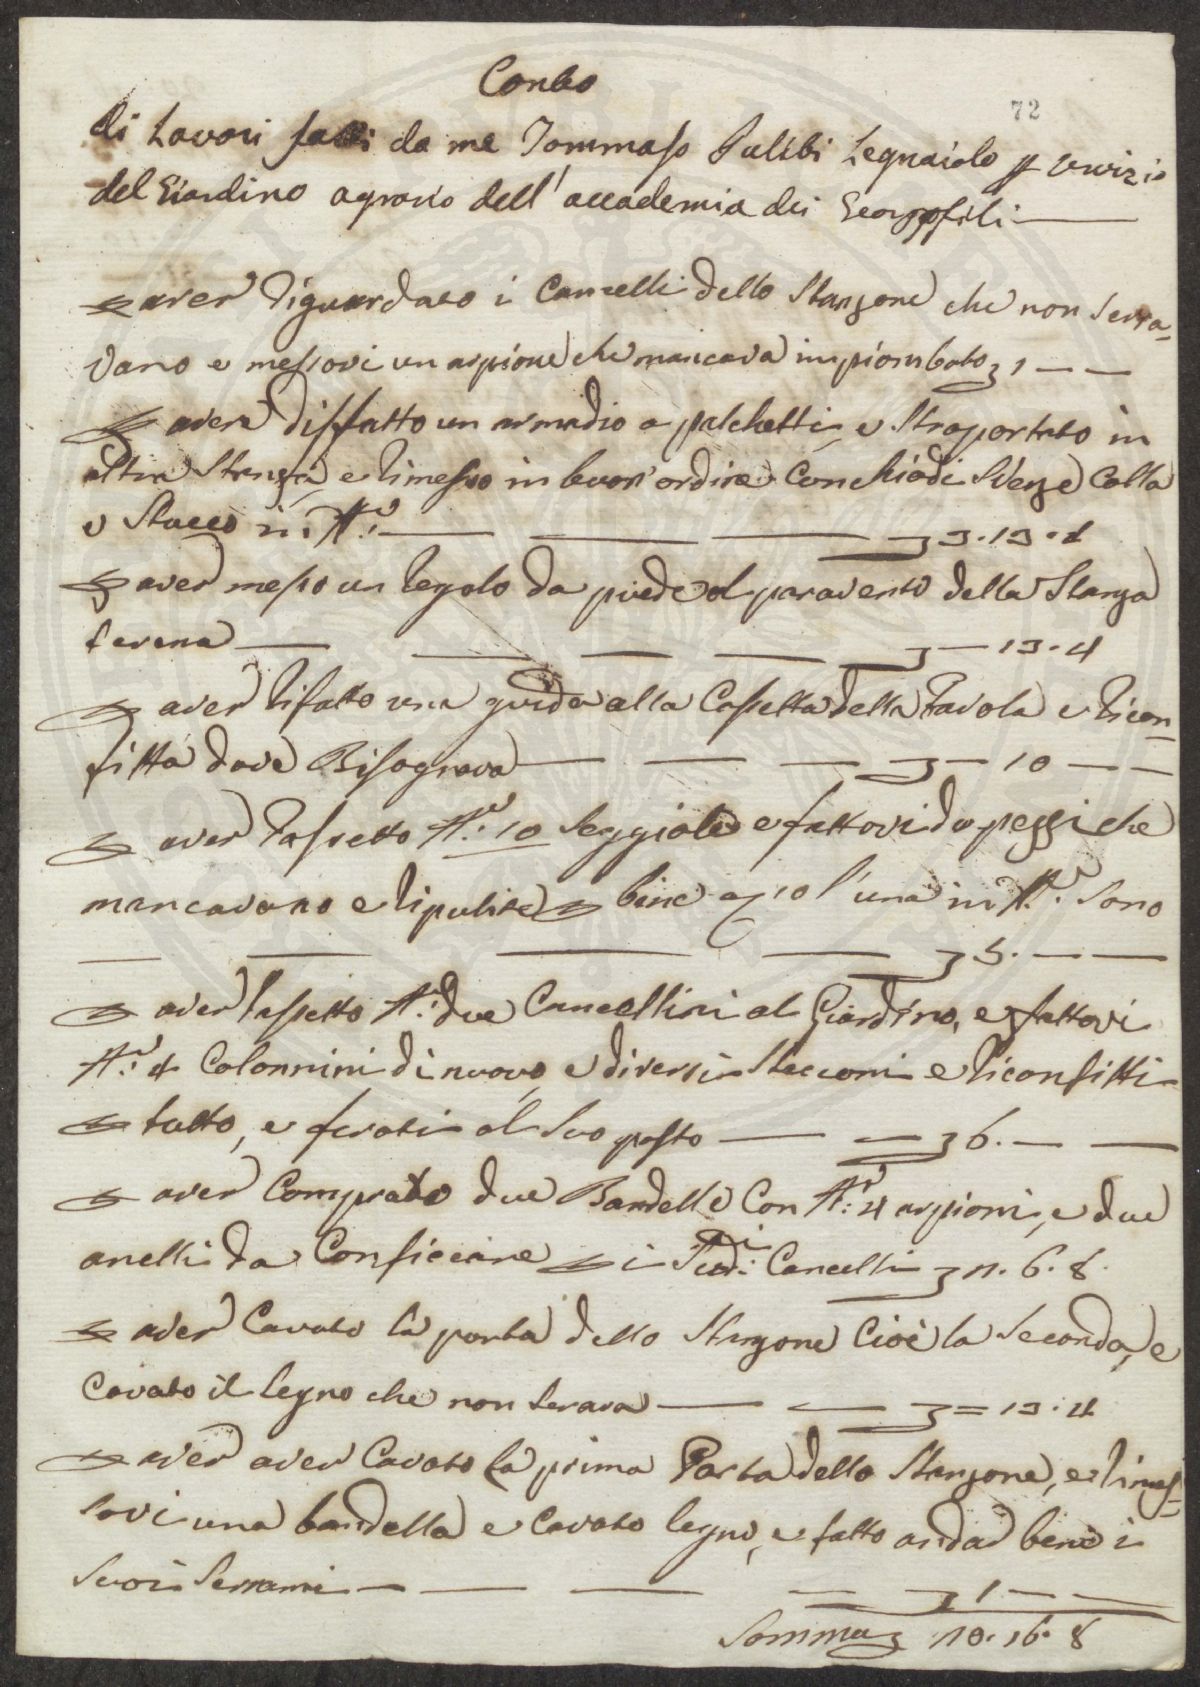 Conto
72
di Lavori fatti da me Tommaso Pulibi Legnaiolo p servizio
del Giardino agrario dell'accademia dei Georgofili
p aver riguardato i Cancelli dello Stanzone che non Serra=
vano e messovi un arpione che mancava impiombato £ 1 — —
p avere disfatto un armadio a palchetti, e Straportato in
altra Stanza, e rimesso in buon ordine Con chiodi Scienze Colla
e Stucco in N.° £ 3.13.4
p aver messo un regolo da piede al paravento della Stanza
terena £ — 13.4
p aver rifatto una guida alla Cassetta della Tavola e ricon=
fitta dove Bisognava £ — 10 —
p aver rassetto N.° 10 Seggiole e fattovi da pezzi che
mancavano e ripulite p bene a £ 10 l'una in N.° Sono
£ 5. — —
p aver rassetto N.° due Cancellini al Giardino, e fattovi
N.° 4 Colonnini di nuovo, e diversi Stecconi e riconfitti
p tutto, e ferati al Suo posto £ 6. — —
p aver Comprato due Bandelle Con N.° 4 arpioni, e due
anelli da Conficcare p i Sudi. Cancelli £ 1. 6. 8
p aver Cavato la porta dello Stanzone Cioè la Seconda, e
Cavato il legno che non serava £ = 13.4
p aver aver Cavato la prima Porta dello Stanzone, e rimes=
sovi una bandella e Cavato legno, e fatto andar bene i
Suoi Serrami £ 1 — —
Somma £ 18. 16. 8